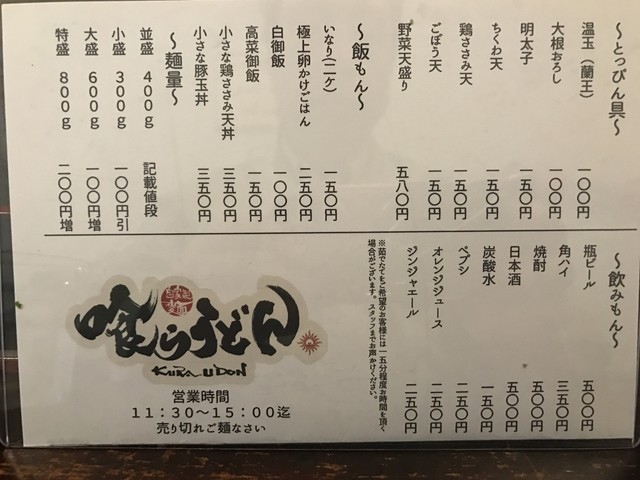 ～とっぴん具～
温玉（蘭王） 一〇〇円
大根おろし 一〇〇円
明太子 一五〇円
ちくわ天 一五〇円
鶏ささみ天 一五〇円
ごぼう天 一五〇円
野菜天盛り 五八〇円
～飯もん～
いなり(二ヶ) 一五〇円
極上卵かけごはん 二五〇円
白御飯 一〇〇円
高菜御飯 一五〇円
小さな鶏ささみ天丼 三五〇円
小さな豚玉丼 三五〇円
～麺量～
並盛 400g 記載値段
小盛 300g 一〇〇円引
大盛 600g 一〇〇円増
特盛 800g 二〇〇円増
～飲みもん～
瓶ビール 五〇〇円
角ハイ 三五〇円
焼酎 五〇〇円
日本酒 五〇〇円
炭酸水 一五〇円
ペプシ 二五〇円
オレンジジュース 二五〇円
ジンジャエール 二五〇円
※茹でたてをご希望のお客様には一五分程度お時間を頂く
場合がございます。スタッフまでお声かけください。
喰らうどん
KURA-UDON
営業時間
11:30～15:00迄
売り切れご麺なさい